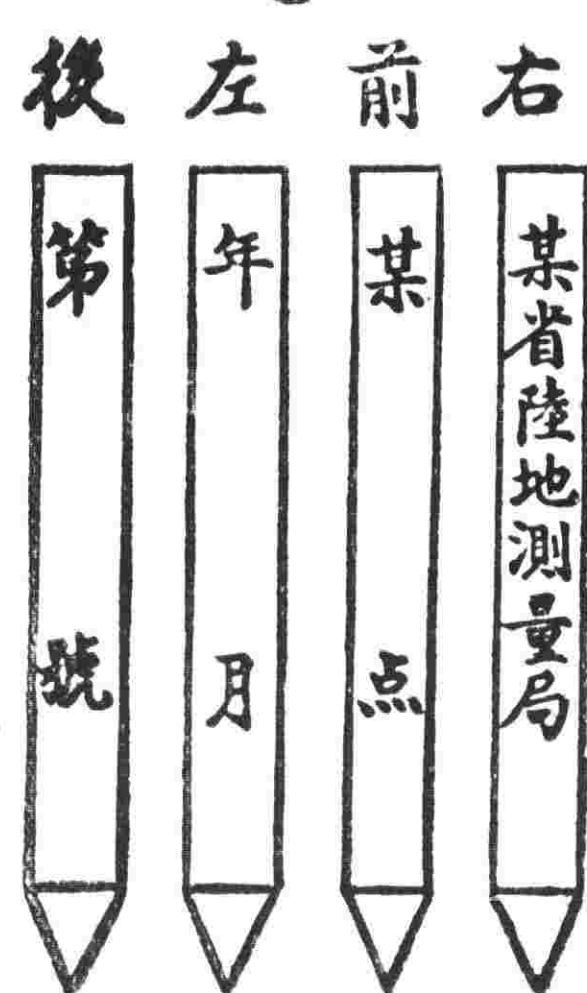 右 前 左 後
某省陸地測量局
某 点
年 月
第 號